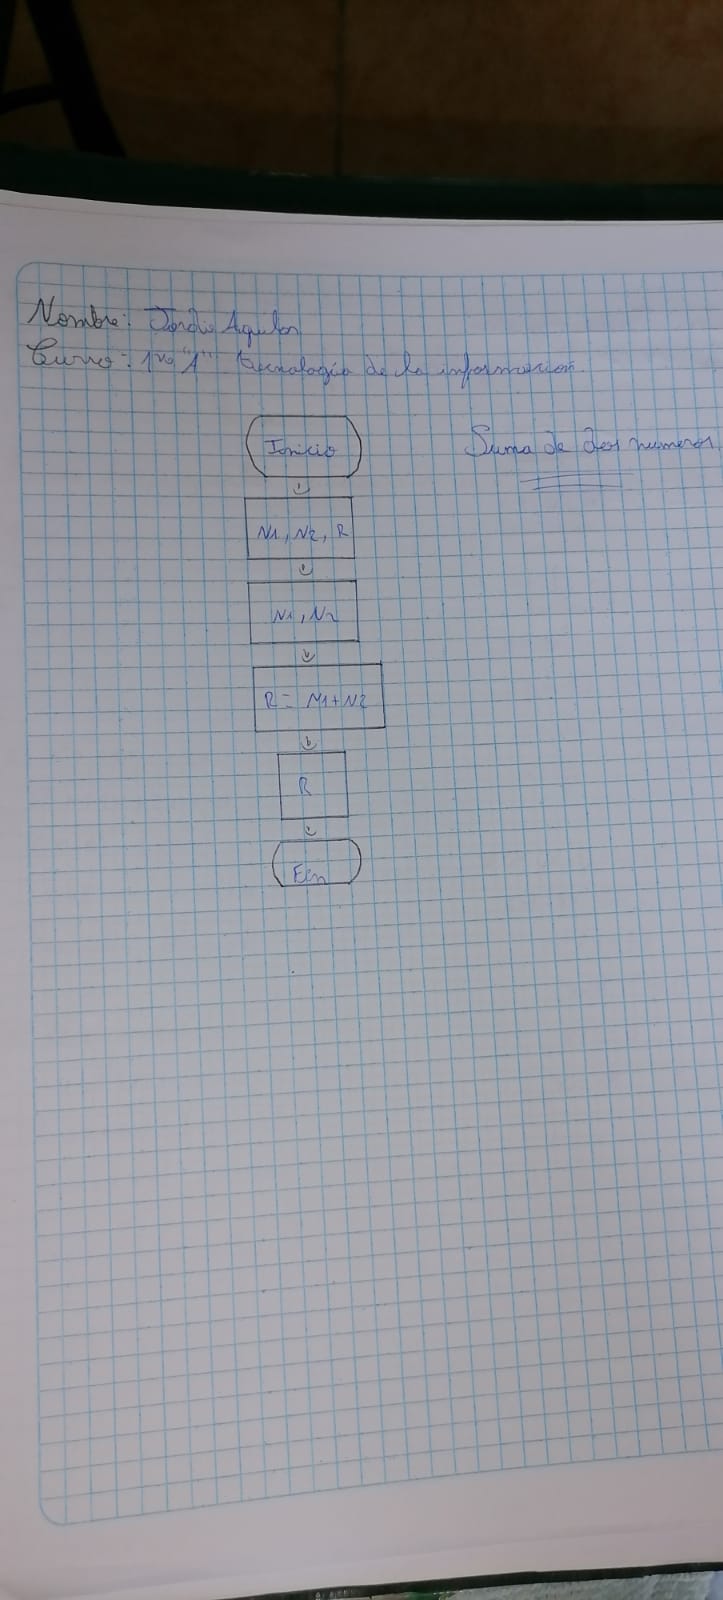 Nombre: Jordi Aguilar
Curso: 1ro "A" tecnología de la información.
Suma de dos numeros
Inicio
N1, N2, R
N1, N2
R = N1+N2
R
Fin